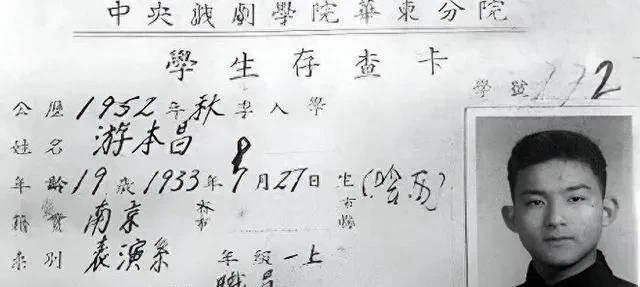 中央戲劇學院華東分院
學生存查卡
學號
公歷1952年秋季入學
姓名 游本昌
年齡19歲1933年 月27日生
籍貫 南京 市 市縣
系別 表演系 年級 一上